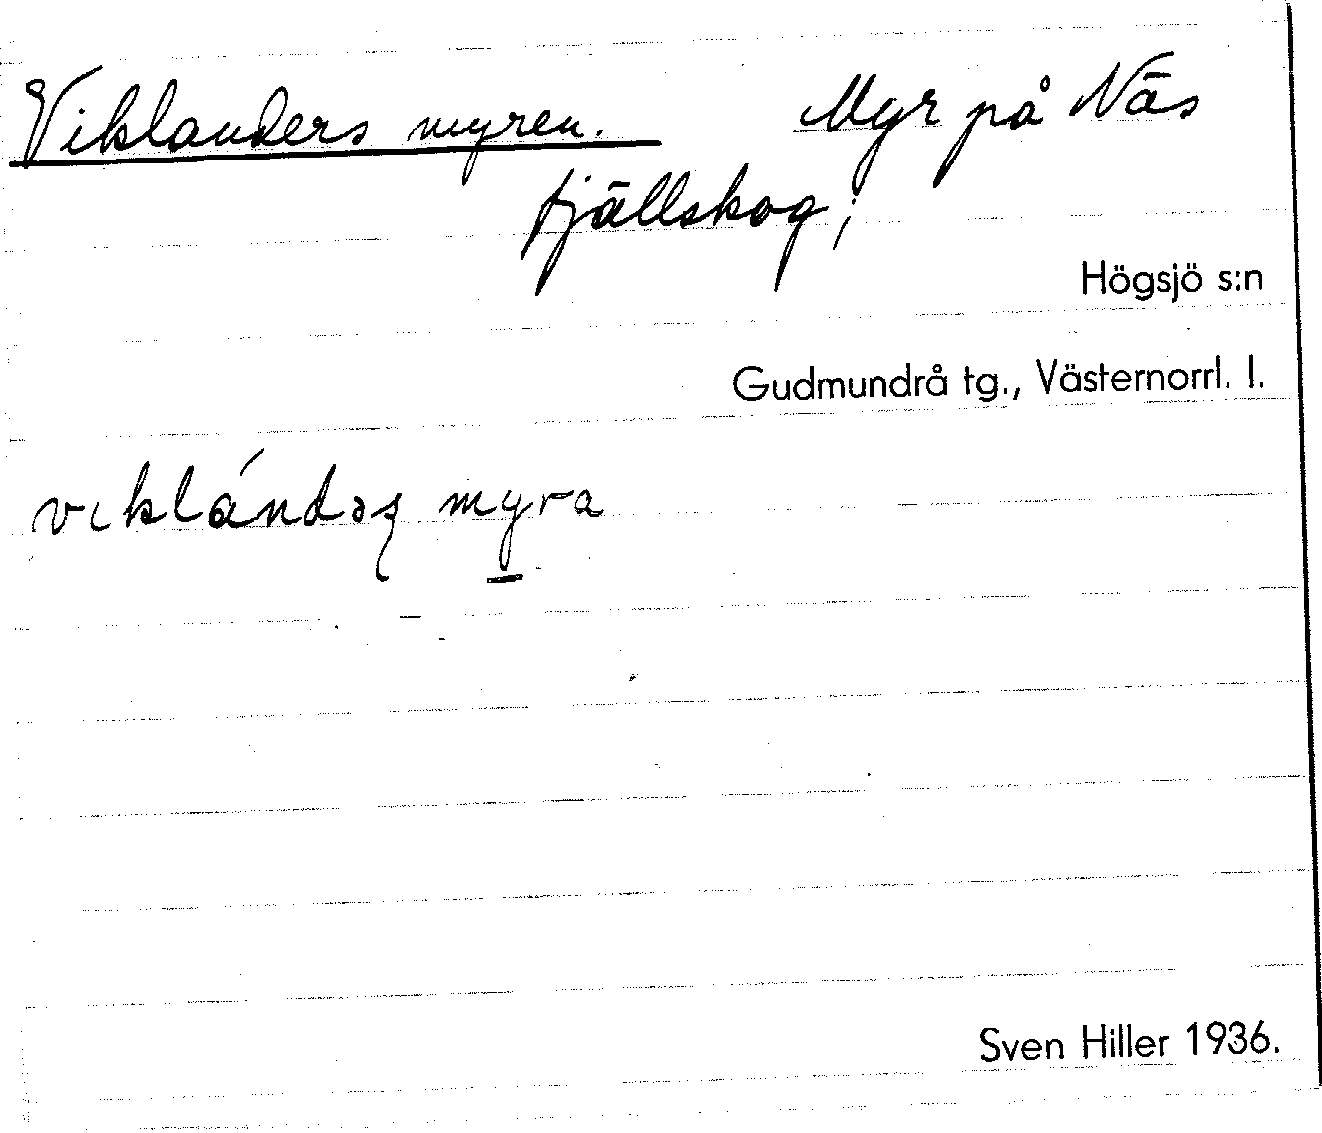 Viklanders myren. Myr på Näs
fjällskog;
Högsjö s:n
Gudmundrå tg., Västernorrl. l.
myra
Sven Hiller 1936.